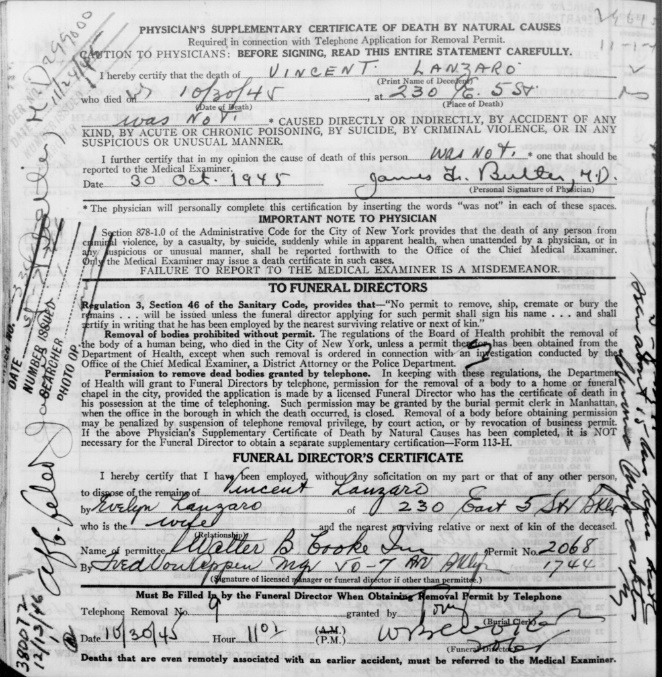 PHYSICIAN'S SUPPLEMENTARY CERTIFICATE OF DEATH BY NATURAL CAUSES
Required in connection with Telephone Application for Removal Permit.
CAUTION TO PHYSICIANS: BEFORE SIGNING, READ THIS ENTIRE STATEMENT CAREFULLY.
I hereby certify that the death of VINCENT LANZARO
(Print Name of Decedent)
who died on 10/30/45, at 230 E. 5 St
(Date of Death) (Place of Death)
was Not. * CAUSED DIRECTLY OR INDIRECTLY, BY ACCIDENT OF ANY
KIND, BY ACUTE OR CHRONIC POISONING, BY SUICIDE, BY CRIMINAL VIOLENCE, OR IN ANY
SUSPICIOUS OR UNUSUAL MANNER.
I further certify that in my opinion the cause of death of this person was not. * one that should be
reported to the Medical Examiner.
Date 30 Oct. 1945 James L. Butler, M.D.
(Personal Signature of Physician)
* The physician will personally complete this certification by inserting the words "was not" in each of these spaces.
IMPORTANT NOTE TO PHYSICIAN
Section 878-1.0 of the Administrative Code for the City of New York provides that the death of any person from
criminal violence, by a casualty, by suicide, suddenly while in apparent health, when unattended by a physician, or in
any suspicious or unusual manner, shall be reported forthwith to the Office of the Chief Medical Examiner.
Only the Medical Examiner may issue a death certificate in such cases.
FAILURE TO REPORT TO THE MEDICAL EXAMINER IS A MISDEMEANOR.
TO FUNERAL DIRECTORS
Regulation 3, Section 46 of the Sanitary Code, provides that—"No permit to remove, ship, cremate or bury the
remains . . . will be issued unless the funeral director applying for such permit shall sign his name . . . and shall
certify in writing that he has been employed by the nearest surviving relative or next of kin."
Removal of bodies prohibited without permit. The regulations of the Board of Health prohibit the removal of
the body of a human being, who died in the City of New York, unless a permit therefor has been obtained from the
Department of Health, except when such removal is ordered in connection with an investigation conducted by the
Office of the Chief Medical Examiner, a District Attorney or the Police Department.
Permission to remove dead bodies granted by telephone. In keeping with these regulations, the Department
of Health will grant to Funeral Directors by telephone, permission for the removal of a body to a home or funeral
chapel in the city, provided the application is made by a licensed Funeral Director who has the certificate of death in
his possession at the time of telephoning. Such permission may be granted by the burial permit clerk in Manhattan,
when the office in the borough in which the death occurred, is closed. Removal of a body before obtaining permission
may be penalized by suspension of telephone removal privilege, by court action, or by revocation of business permit.
If the above Physician's Supplementary Certificate of Death by Natural Causes has been completed, it is NOT
necessary for the Funeral Director to obtain a separate supplementary certification—Form 113-H.
FUNERAL DIRECTOR'S CERTIFICATE
I hereby certify that I have been employed, without any solicitation on my part or that of any other person,
to dispose of the remains of Vincent Lanzaro
by Evelyn Lanzaro of 230 East 5 St Bklyn
who is the wife and the nearest surviving relative or next of kin of the deceased.
(Relationship)
Name of permittee Walter B Cooke Inc Permit No. 2068
By Mgr 50-7 Av Bklyn 1744
(Signature of licensed manager or funeral director if other than permittee.)
Must Be Filled in by the Funeral Director When Obtaining Removal Permit by Telephone
Telephone Removal No. 9 granted by
(Burial Clerk)
Date 10/30/45 Hour 11 01 (A.M.) (P.M.) W B Cooke
(Funeral Director)
Deaths that are even remotely associated with an earlier accident, must be referred to the Medical Examiner.
DATE
NUMBER ISSUED
SEARCHED
PHOTO OP.
380072
12/13/46